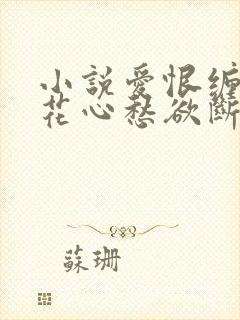 小說愛恨纏
花心愁欲斷
蘇珊